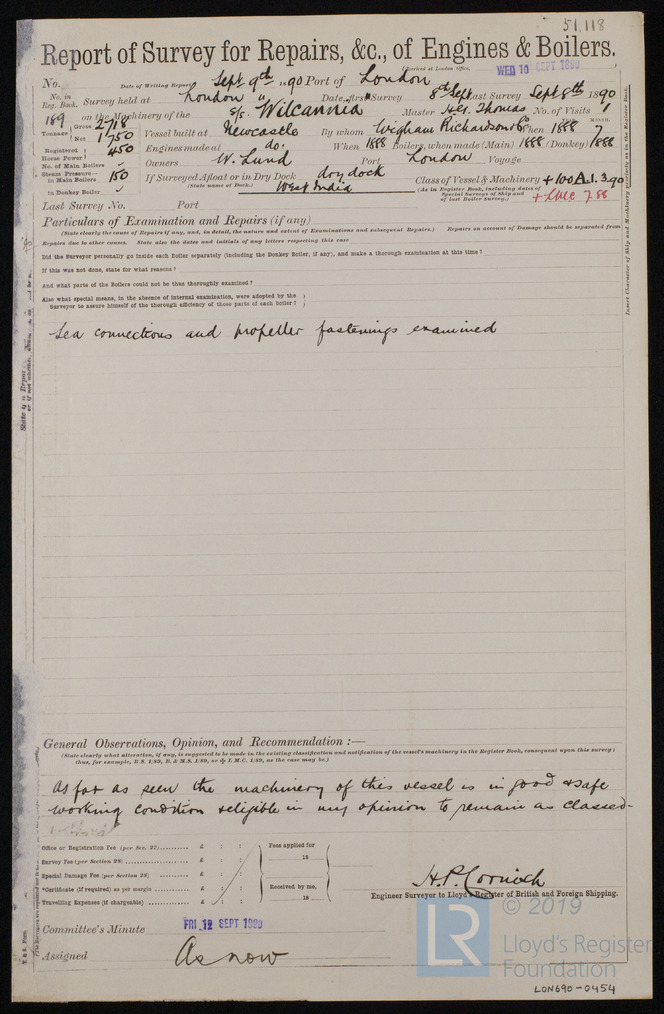 51,118
Report of Survey for Repairs, &c., of Engines & Boilers.
(Received at London Office, WED 10 SEPT 1890
No. Date of Writing Report Sept 9th 1890 Port of London
No. in Reg. Book. Survey held at London Date, first Survey 8th Sept Last Survey Sept 8th 1890
189 on the Machinery of the S/S. "Wilcannia" Master Hy. Thomas No. of Visits 1
Tonnage Gross 2718 Net 1750 Vessel built at Newcastle By whom Wigham Richardson & Co When 1888 MONTH. 7
Registered Horse Power 450 Engines made at do. When 1888 Boilers, when made (Main) 1888 (Donkey) 1888
No. of Main Boilers ✓ Owners W. Lund Port London Voyage
Steam Pressure— in Main Boilers 150 If Surveyed Afloat or in Dry Dock dry dock Class of Vessel & Machinery +100A.1. 3.90
in Donkey Boiler ✓ (State name of Dock.) West India (As in Register Book, including dates of Special Surveys of Ship and of last Boiler Survey.) + LMC 7.88
Last Survey No. Port
Particulars of Examination and Repairs (if any)
(State clearly the cause of Repairs if any, and, in detail, the nature and extent of Examinations and subsequent Repairs.) Repairs on account of Damage should be separated from
Repairs due to other causes. State also the dates and initials of any letters respecting this case
Did the Surveyor personally go inside each Boiler separately (including the Donkey Boiler, if any), and make a thorough examination at this time?
If this was not done, state for what reasons?
And what parts of the Boilers could not be thus thoroughly examined?
Also what special means, in the absence of internal examination, were adopted by the
Surveyor to assure himself of the thorough efficiency of those parts of each boiler?
Sea connections and propeller fastenings examined
General Observations, Opinion, and Recommendation :—
(State clearly what alteration, if any, is suggested to be made in the existing classification and notification of the vessel's machinery in the Register Book, consequent upon this survey;
thus, for example, B.S. 1/89, B. & M.S. 1/89, or ✠ L.M.C. 1/89, as the case may be.)
As far as seen the machinery of this vessel is in good & safe
working condition & eligible in my opinion to remain as classed
Office or Registration Fee (per Sec. 27) £ : : Fees applied for
Survey Fee (per Section 28) £ : : 18
Special Damage Fee (per Section 28) £ : :
*Certificate (if required) as per margin £ : : Received by me,
Travelling Expenses (if chargeable) £ : : 18
H.P. Cornish
Engineer Surveyor to Lloyd's Register of British and Foreign Shipping.
Committee's Minute FRI. 12 SEPT 1890
Assigned As now
LR © 2019
Lloyd's Register
Foundation
LON690-0454
Insert Character of Ship and Machinery precisely as in the Register Book.